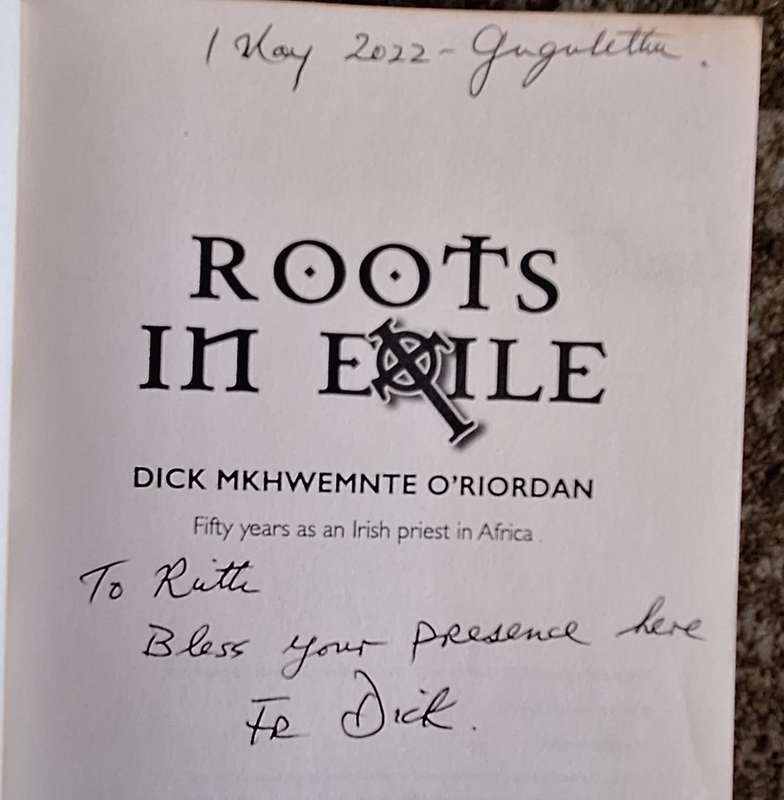 1 May 2022 - Gugulethu.
ROOTS
IN EXILE
DICK MKHWEMNTE O'RIORDAN
Fifty years as an Irish priest in Africa
To Ruth
Bless your presence here
Fr Dick.